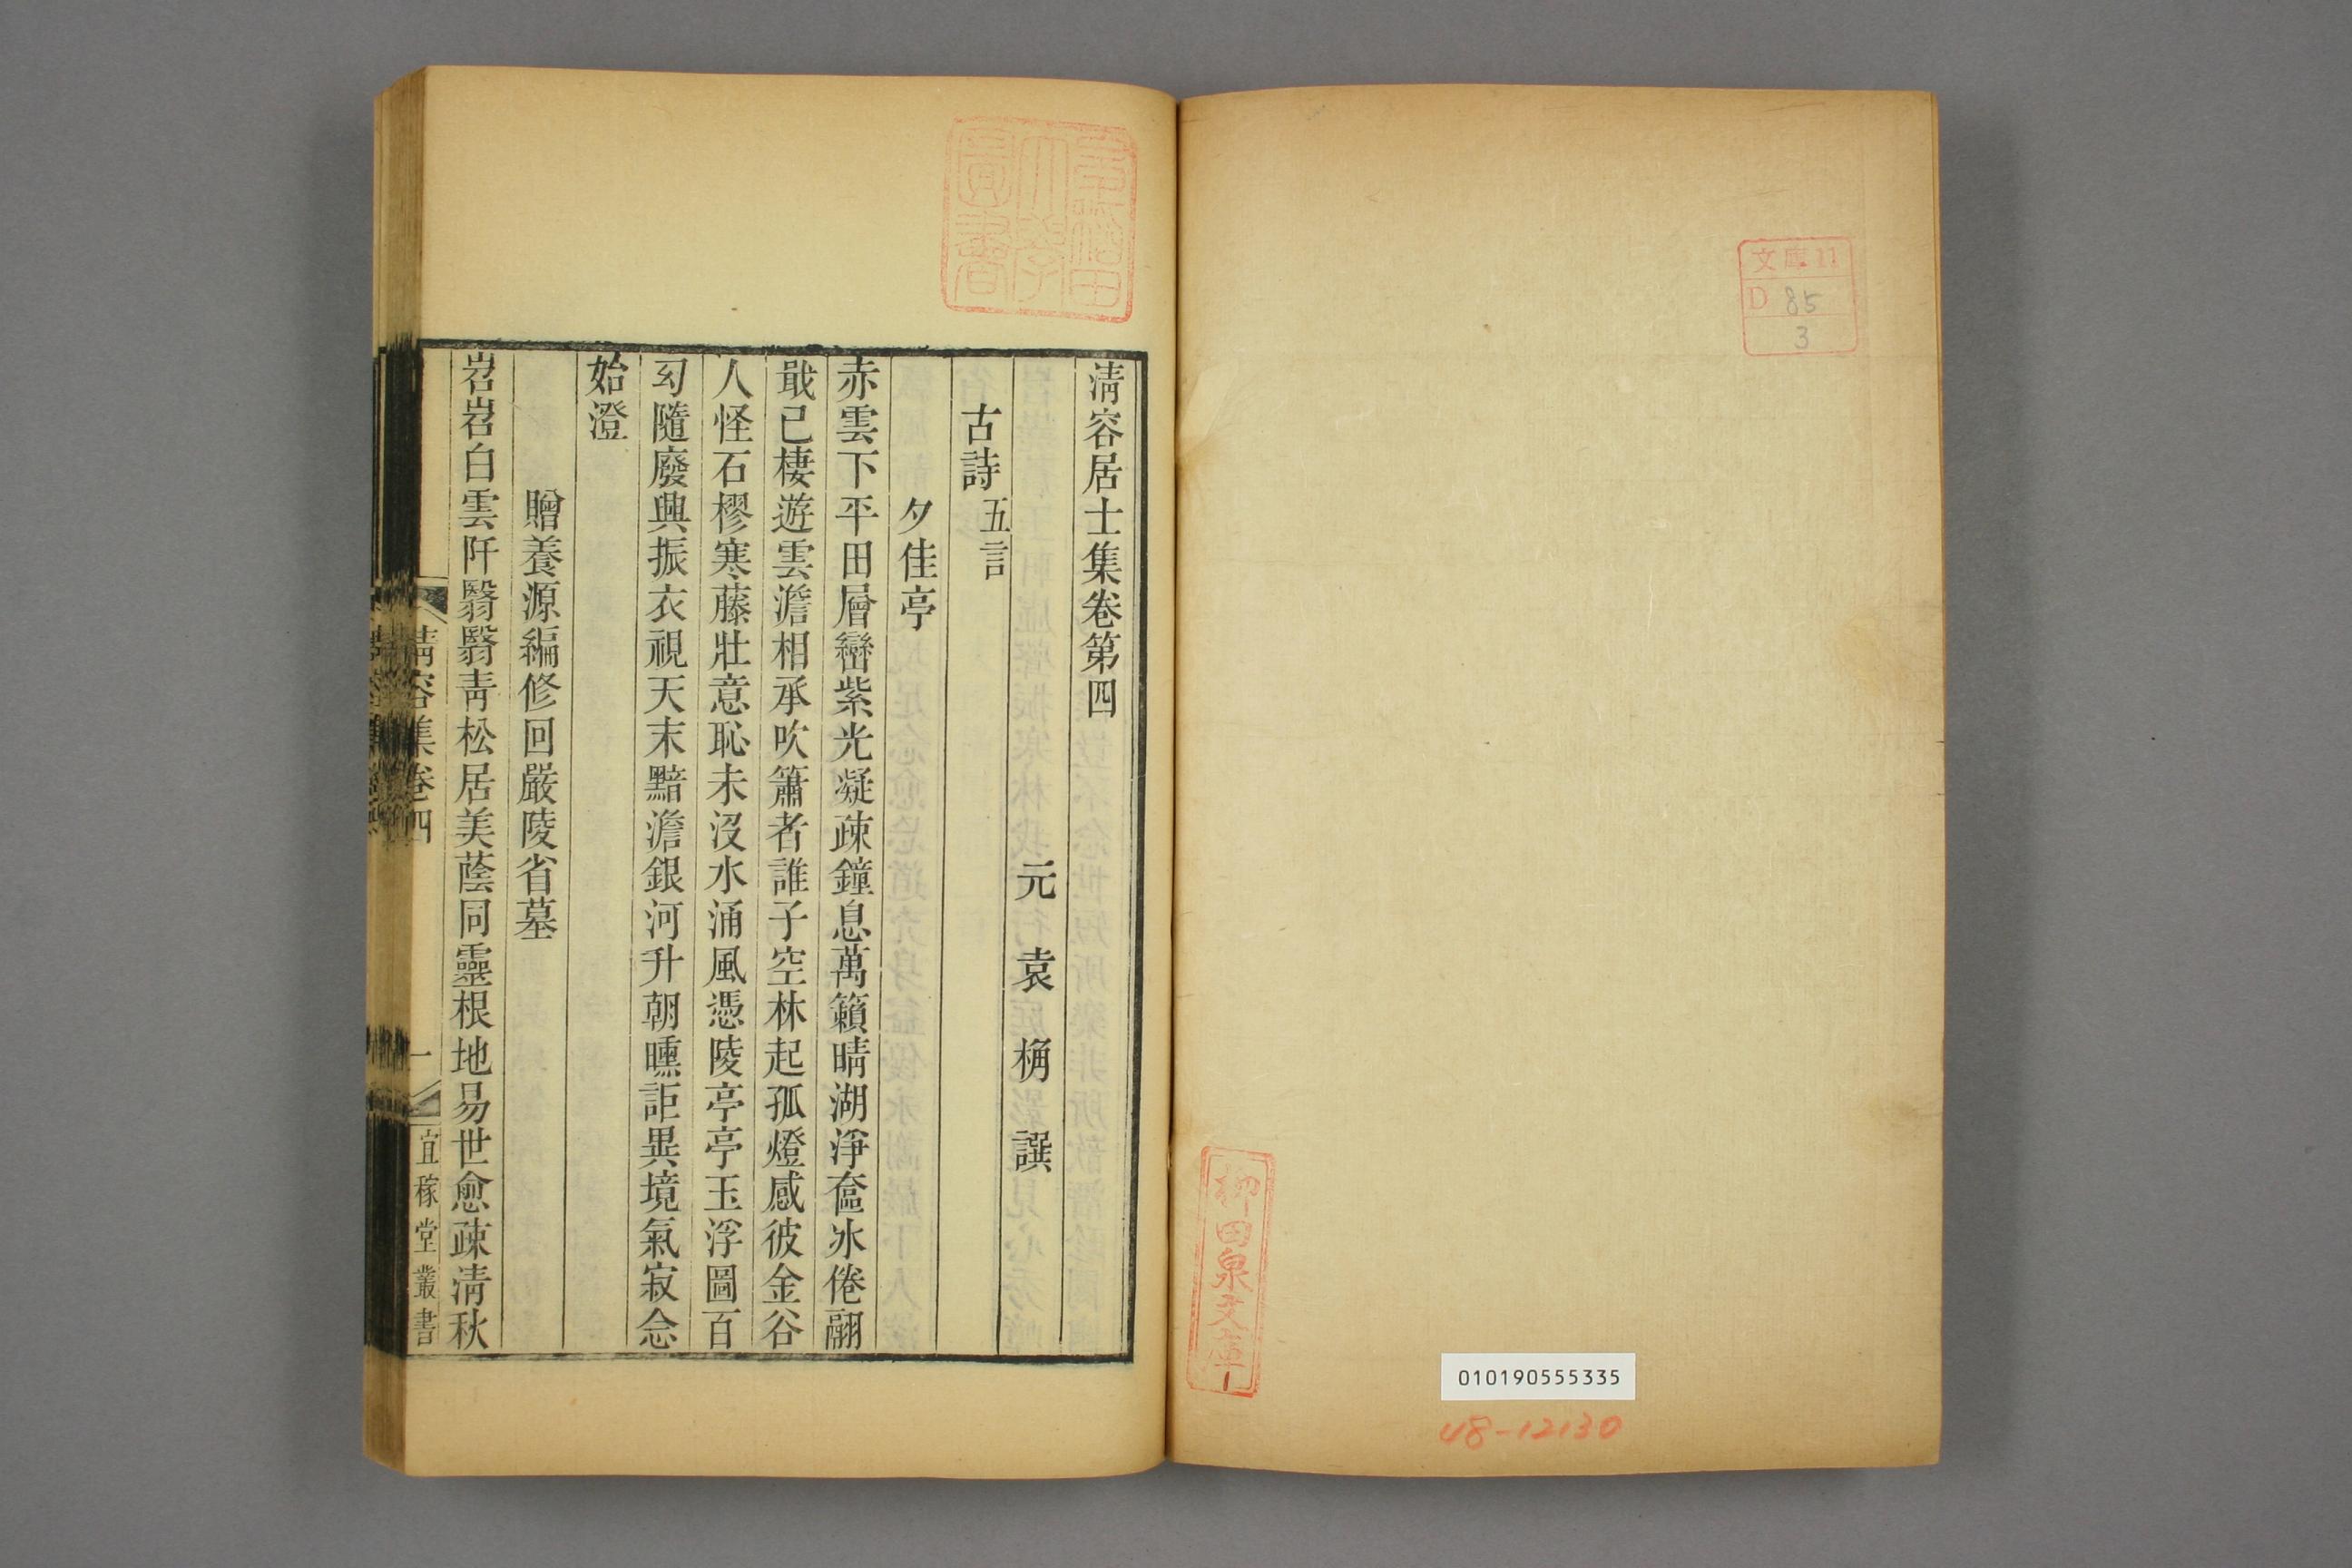 文庫11
D 85
3
柳田泉文庫
010190555335
48-12130
早稲田大學圖書
清容居士集卷第四
元袁桷譔
古詩五言
夕佳亭
赤雲下平田層巒紫光凝疎鐘息萬籟晴湖淨奩冰倦翮
戢已棲遊雲澹相承吹簫者誰子空林起孤燈感彼金谷
人怪石樛寒藤壯意恥未沒水涌風憑陵亭亭玉浮圖百
幻隨廢興振衣視天末黯澹銀河升朝曛詎異境氣寂念
始澄
贈養源編修回嚴陵省墓
岧岧白雲阡翳翳靑松居美蔭同靈根地易世愈疎清秋
清容集卷四
一
宜稼堂叢書